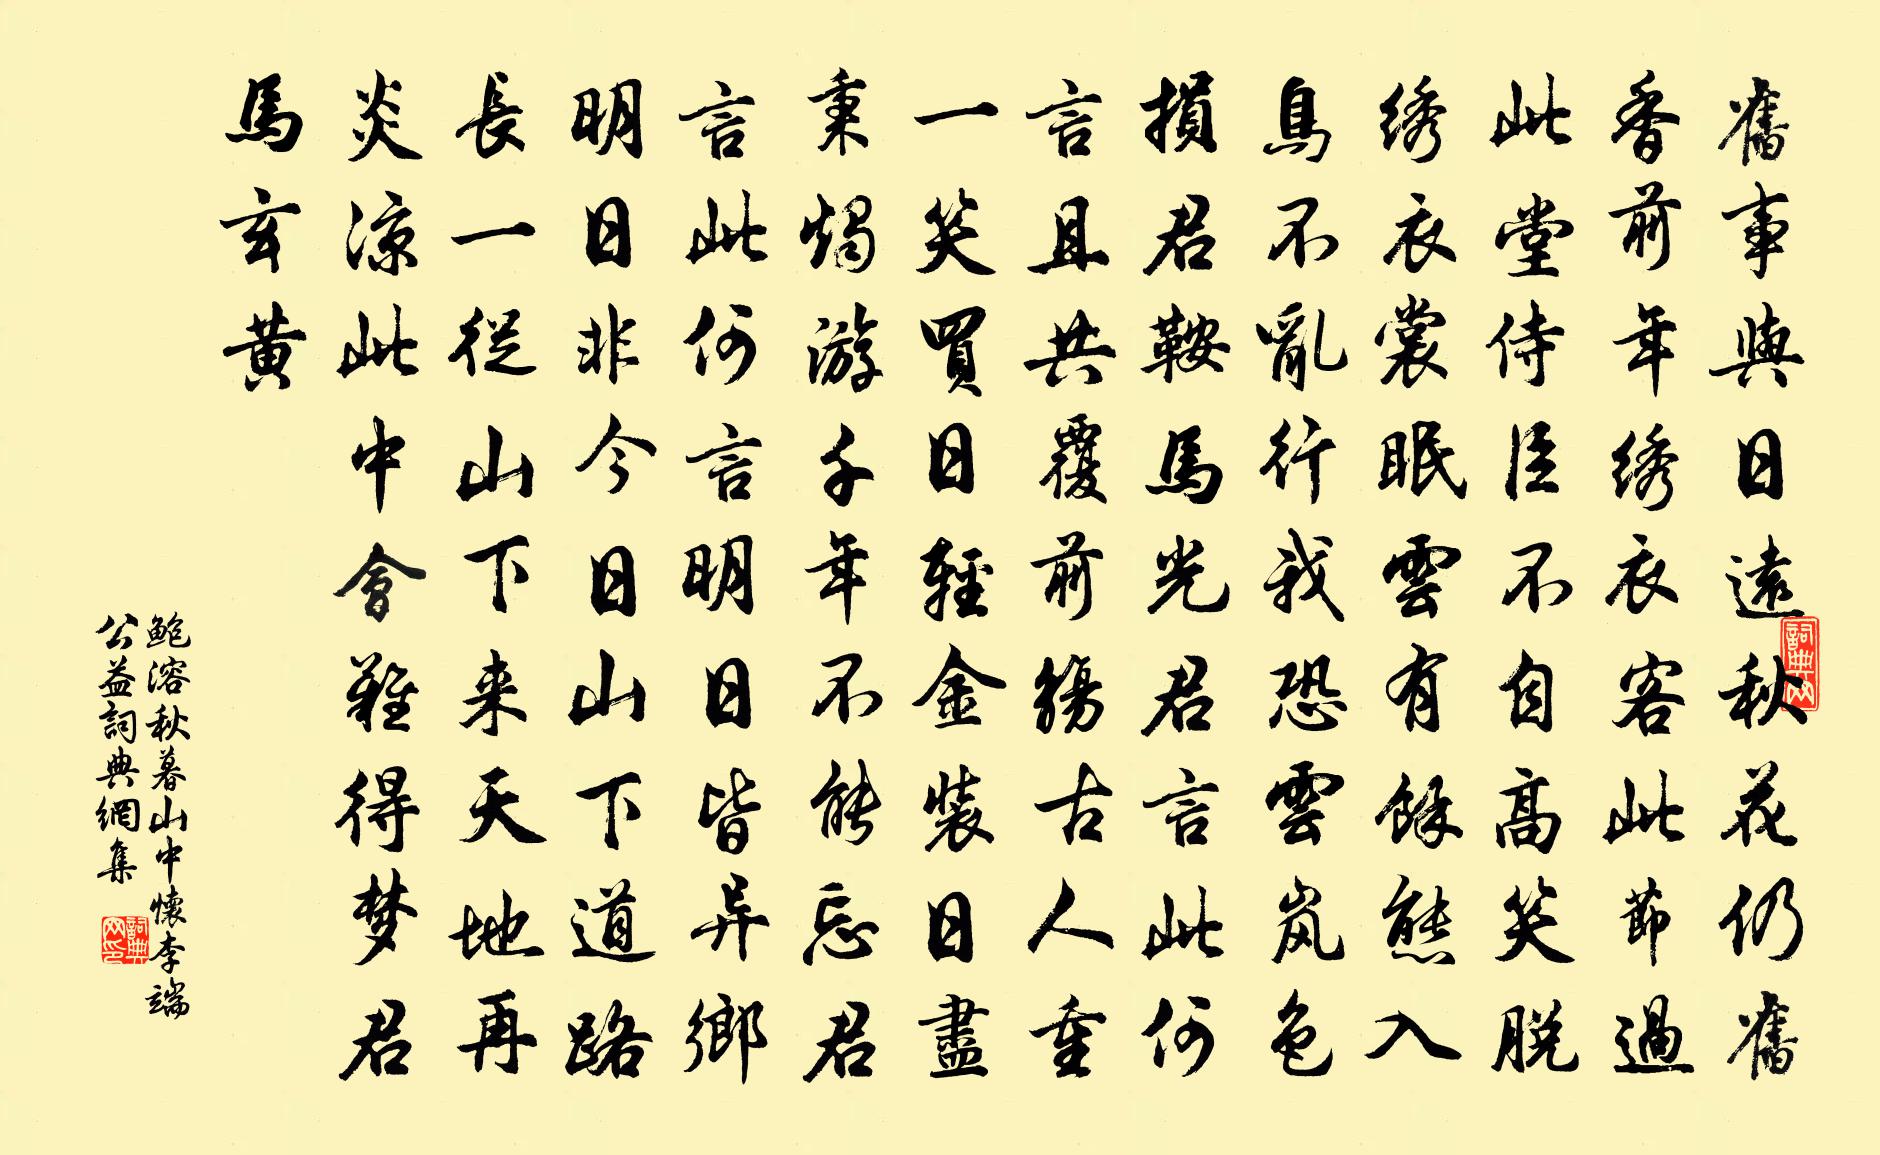 舊事與日遠秋花仍舊
香前年绣衣客此節過
此堂侍臣不自高笑脱
绣衣裳眠雲有餘態入
鳥不亂行我恐雲岚色
損君鞍馬光君言此何
言且共覆前觴古人重
一笑買日輕金裝日盡
秉燭游千年不能忘君
言此何言明日皆异鄉
明日非今日山下道路
長一從山下来天地再
炎涼此中會難得梦君
馬玄黄
鲍溶秋暮山中懷李端
公益詞典網集
詞典网
詞典网印